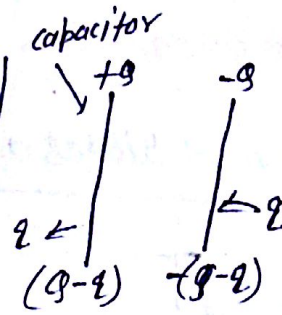 capacitor
+Q -Q
q q
(Q-q) -(Q-q)